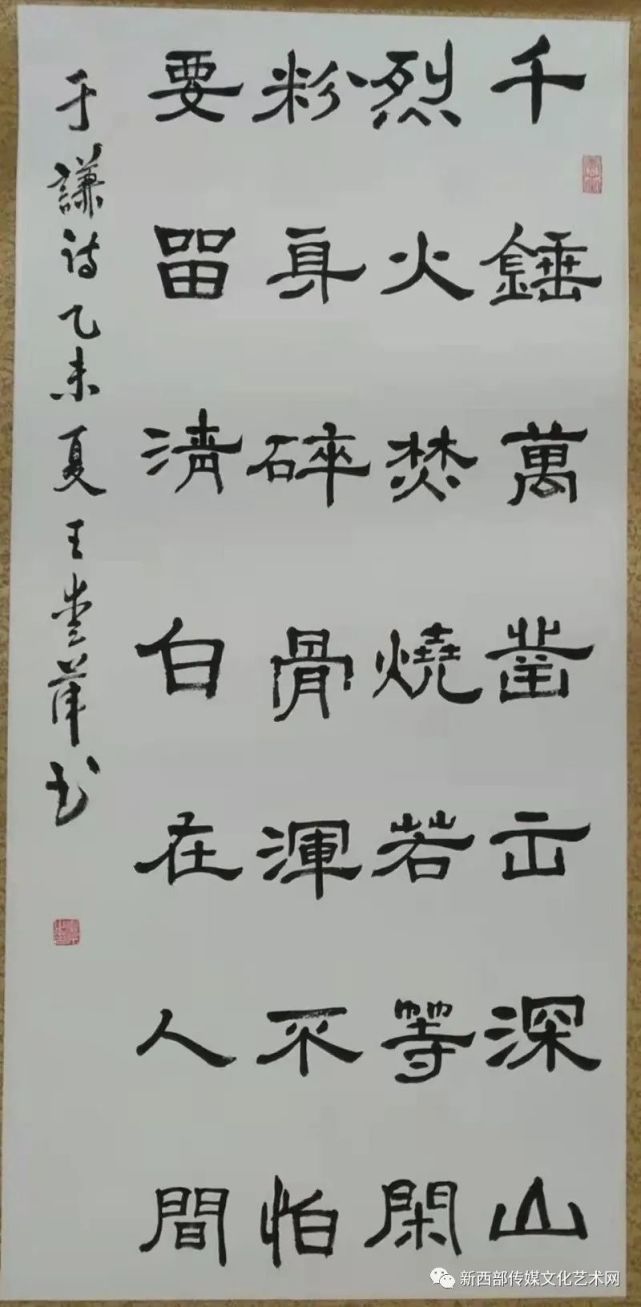 千錘萬凿出深山
烈火焚燒若等閑
粉身碎骨渾不怕
要留清白在人間
于謙诗乙未夏王愛萍书
新西部传媒文化艺术网